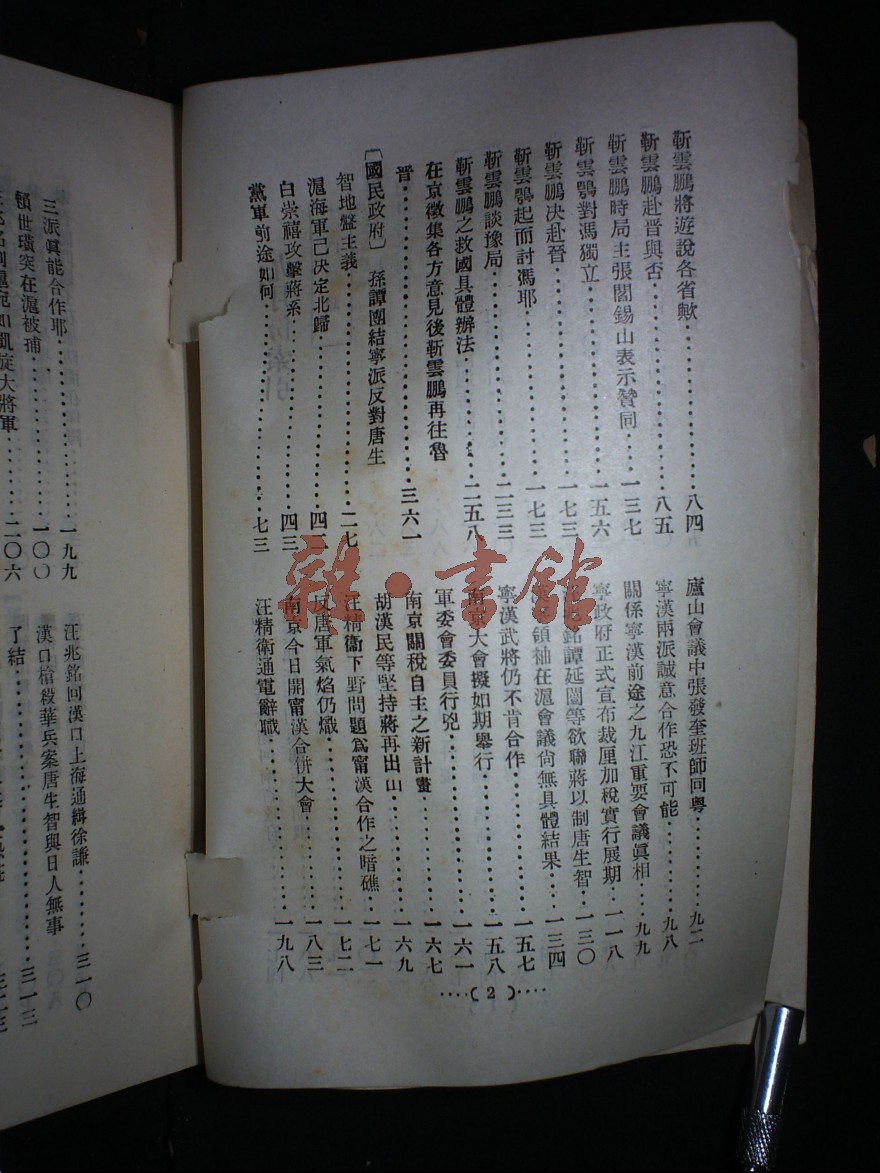 靳雲鵬將遊說各省歟⋯⋯八四
靳雲鵬赴晋與否⋯⋯八五
靳雲鵬時局主張閻錫山表示贊同⋯⋯一三七
靳雲鶚對馮獨立⋯⋯一五六
靳雲鵬決赴晉⋯⋯一七三
靳雲鶚起而討馮耶⋯⋯一七三
靳雲鵬談豫局⋯⋯二三三
靳雲鵬之救國具體辦法⋯⋯二五八
在京徵集各方意見後靳雲鵬再往魯
晉⋯⋯三六一
〔國民政府〕 孫譚團結寧派反對唐生
智地盤主義⋯⋯二七
滬海軍己決定北歸⋯⋯四二
白崇禧攻擊蔣系⋯⋯四三
黨軍前途如何⋯⋯七三
廬山會議中張發奎班師回粵⋯⋯九二
寧漢兩派誠意合作恐不可能⋯⋯九八
關係寧漢前途之九江重要會議眞相⋯⋯九九
寧政府正式宣布裁厘加稅實行展期⋯⋯一一八
銘譚延闓等欲聯蔣以制唐生智⋯⋯一三〇
領袖在滬會議尙無具體結果⋯⋯一三四
寧漢武將仍不肯合作⋯⋯一五七
南京大會擬如期舉行⋯⋯一五八
軍委會委員行兇⋯⋯一六一
南京關稅自主之新計畫⋯⋯一六七
胡漢民等堅持蔣再出山⋯⋯一六九
汪精衞下野問題爲甯漢合作之暗礁⋯⋯一七一
反唐軍氣焰仍熾⋯⋯一七二
南京今日開甯漢合併大會⋯⋯一八三
汪精衛通電辭職⋯⋯一九八
⋯⋯( 2 )⋯⋯
三派眞能合作耶⋯⋯一九九
賴世璜突在滬被捕⋯⋯一〇〇
到滬宛如凱旋大將軍⋯⋯二〇六
汪兆銘回漢口上海通緝徐謙⋯⋯三一〇
漢口槍殺華兵案唐生智與日人無事
了結⋯⋯三一三
雜·書館